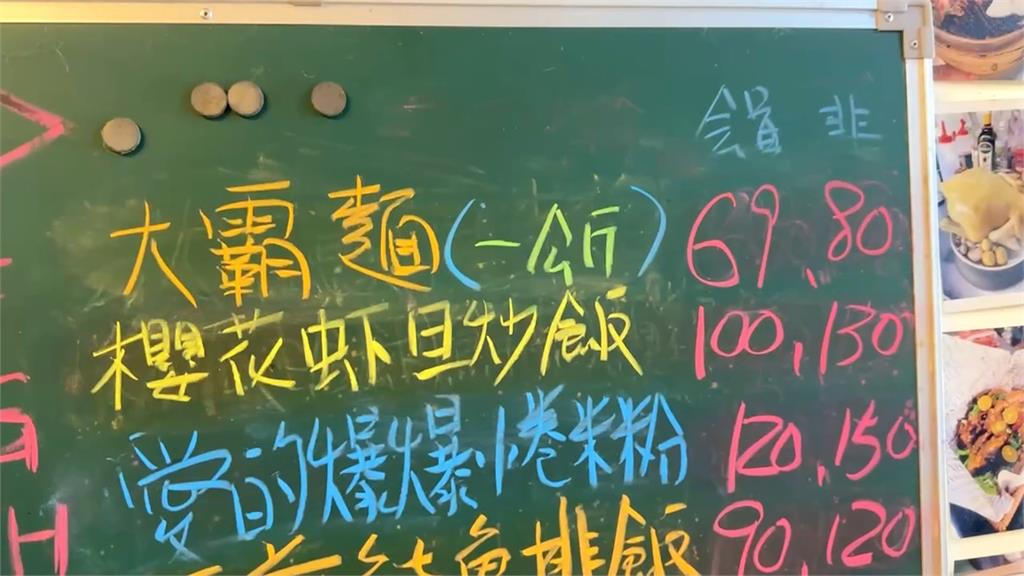 会員 非
大霸麵(一公斤) 69,80
櫻花虾旦炒飯 100,130
愛的爆爆捲米粉 120,150
魚排飯 90,120
H